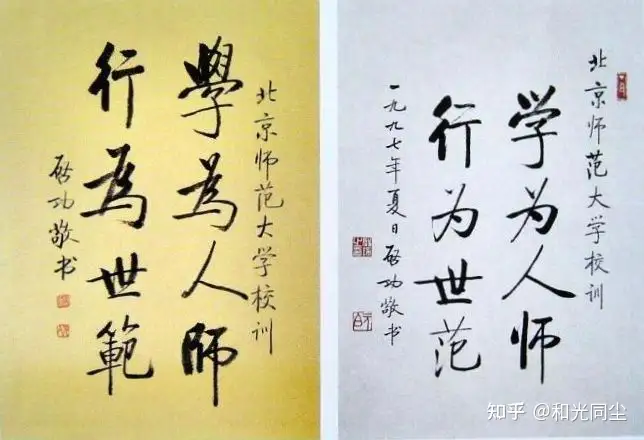 北京师范大学校训
學為人師
行為世範
启功敬书
北京师范大学校训
学为人师
行为世范
一九九七年夏日启功敬书
知乎 @和光同尘